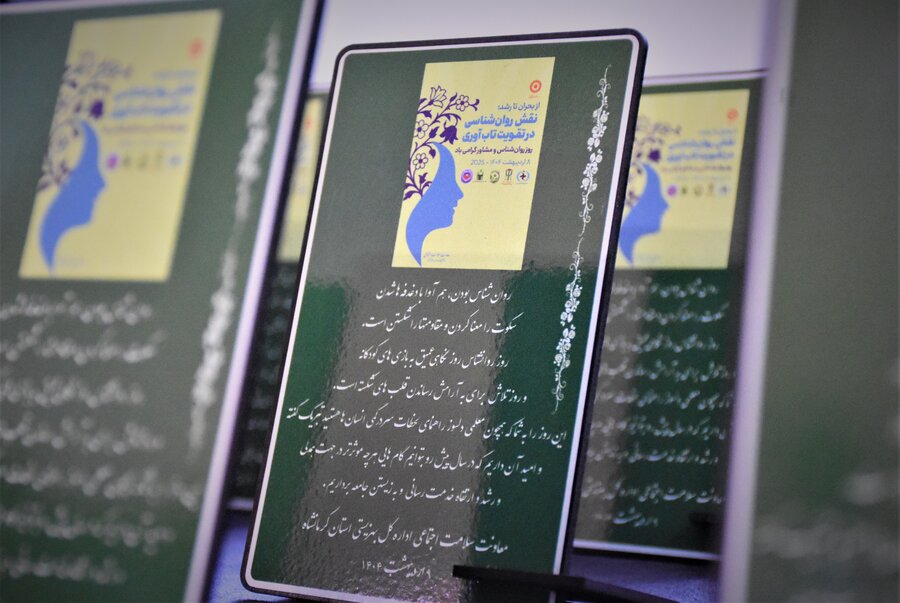 از بحران تا رشد؛
نقش روان‌شناسی
در تقویت تاب‌آوری
روز روان‌شناس و مشاور گرامی باد
۸ اردیبهشت ۱۴۰۴ - 2025
روان شناس بودن، هم آوا با دغدغه ها شدن
سکوت را معنا کردن و مقاومتها را شکستن است.
روز روانشناس روز نگاهی عمیق به بازی های کودکانه
و روز تلاش برای به آرامش رساندن قلب های شکسته است.
این روز را به شما که همچون معلمی دلسوز راهنمای لحظات سردرگمی انسان ها هستید تبریک گفته
و امید آن داریم که در سال پیش رو بتوانیم گام هایی هرچه موثرتر در جهت
و رشد و ارتقاء خدمت رسانی و به زیستن جامعه برداریم.
معاونت سلامت اجتماعی اداره کل بهزیستی استان کرمانشاه
۹ اردیبهشت ۱۴۰۴